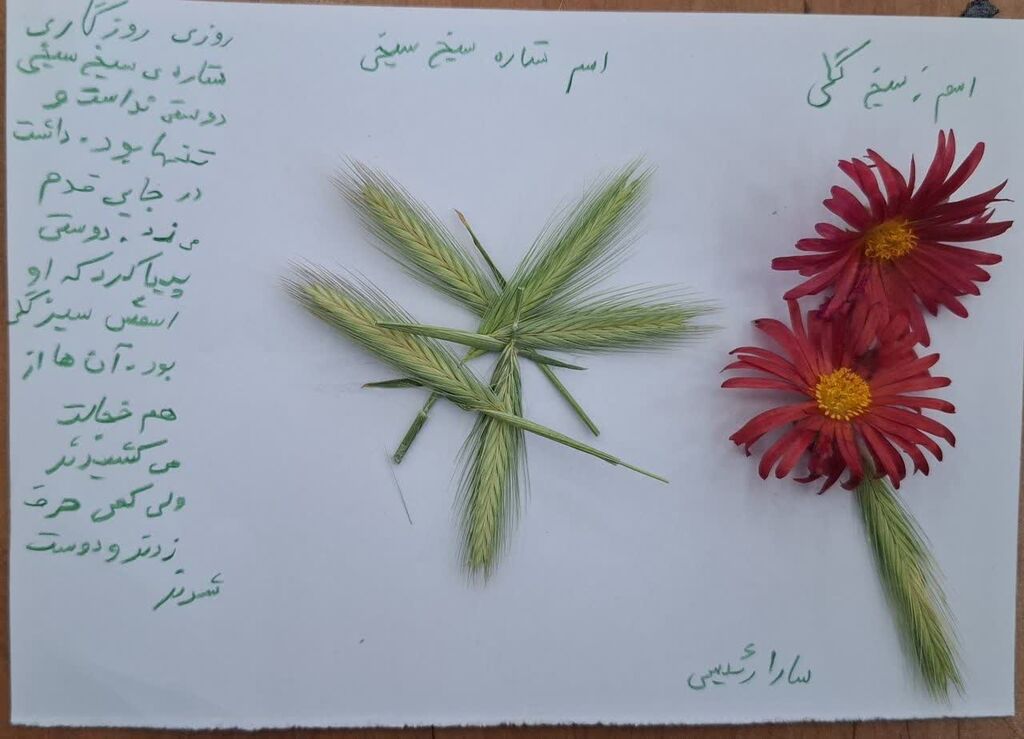 اسم ز سیخ گلی
اسم ستاره سیخ سیخی
روزی روزگاری
ستاره ی سیخ سیخی
دوستی نداست و
تنها بود. داشت
در جایی قدم
می زد. دوستی
پیدا کرد که او
اسمش سیزگلی
بود. آن ها از
هم خجالت
می کشیدند
ولی کمی حرف
زدند و دوست
شدند
سارا رئیسی